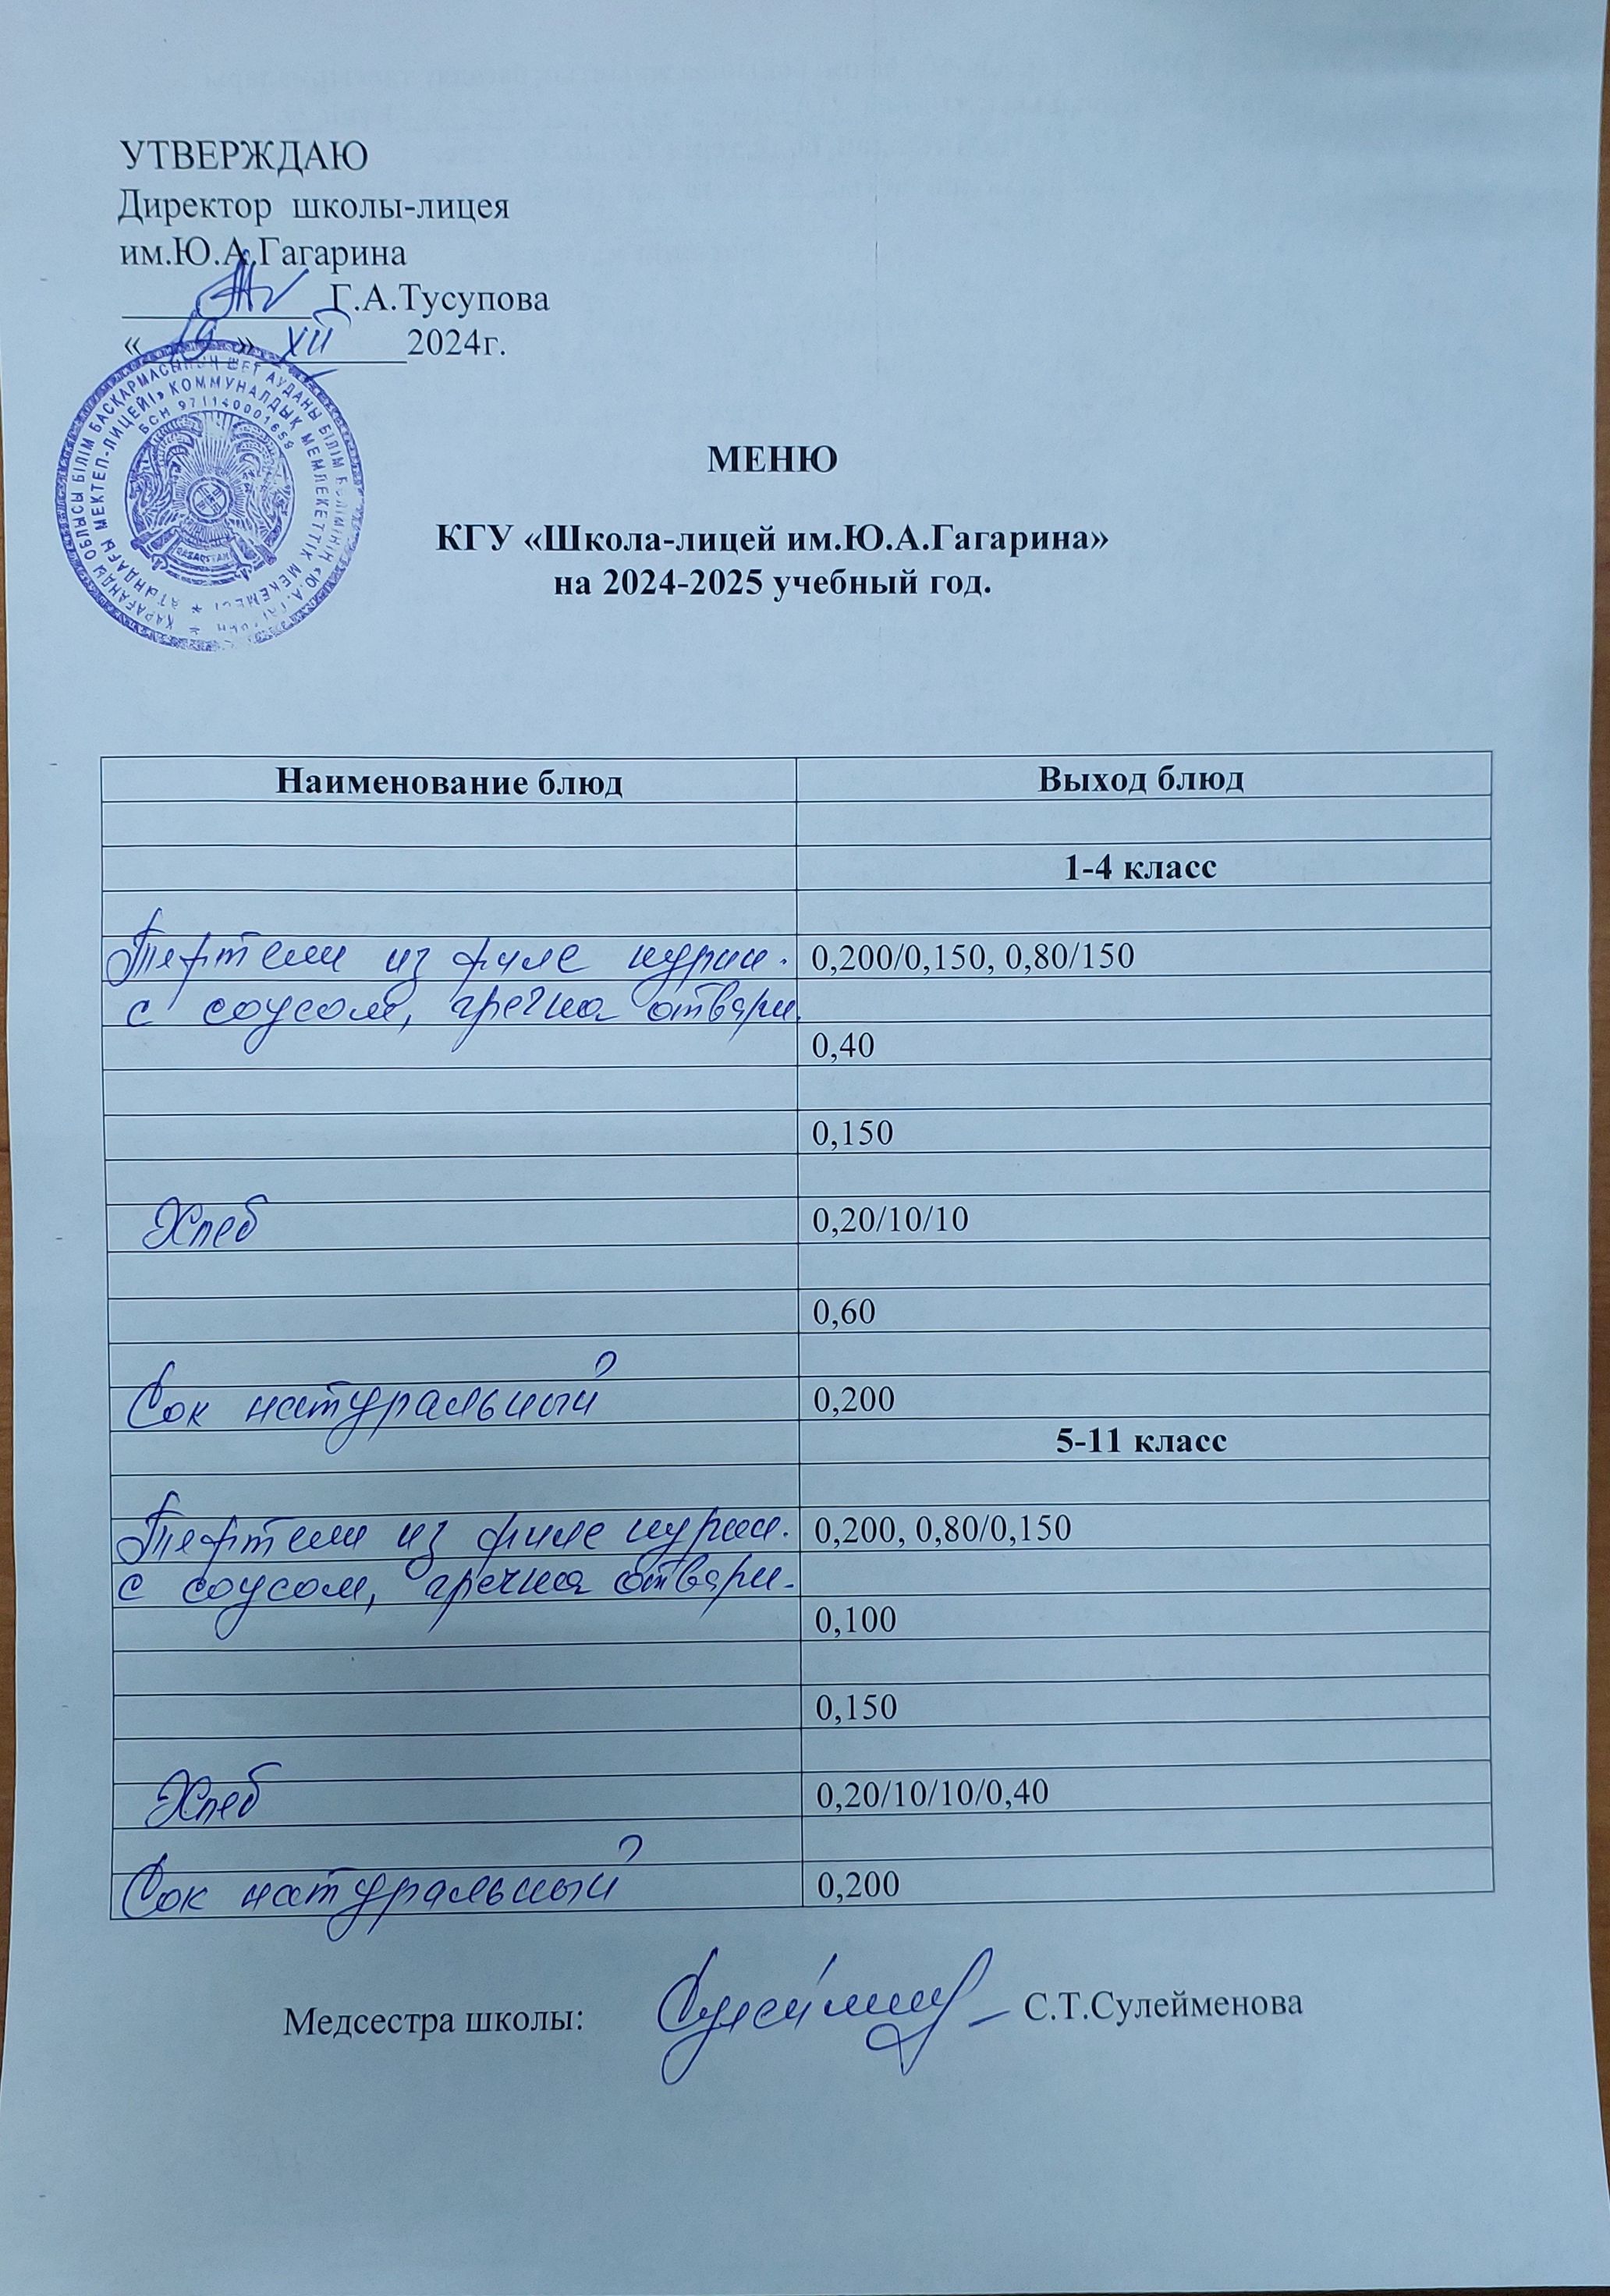 УТВЕРЖДАЮ
Директор школы-лицея
им.Ю.А.Гагарина
Г.А.Тусупова
« 19 » XII 2024г.
БСН 971140001659
QAZAQSTAN
МЕНЮ
КГУ «Школа-лицей им.Ю.А.Гагарина»
на 2024-2025 учебный год.
Наименование блюд Выход блюд
1-4 класс
Тефтели из филе курин. 0,200/0,150, 0,80/150
с соусом, гречка отварн.
0,40
0,150
Хлеб 0,20/10/10
0,60
Сок натуральный 0,200
5-11 класс
Тефтели из филе курин. 0,200, 0,80/0,150
с соусом, гречка отварн.
0,100
0,150
Хлеб 0,20/10/10/0,40
Сок натуральный 0,200
Медсестра школы: С.Т.Сулейменова